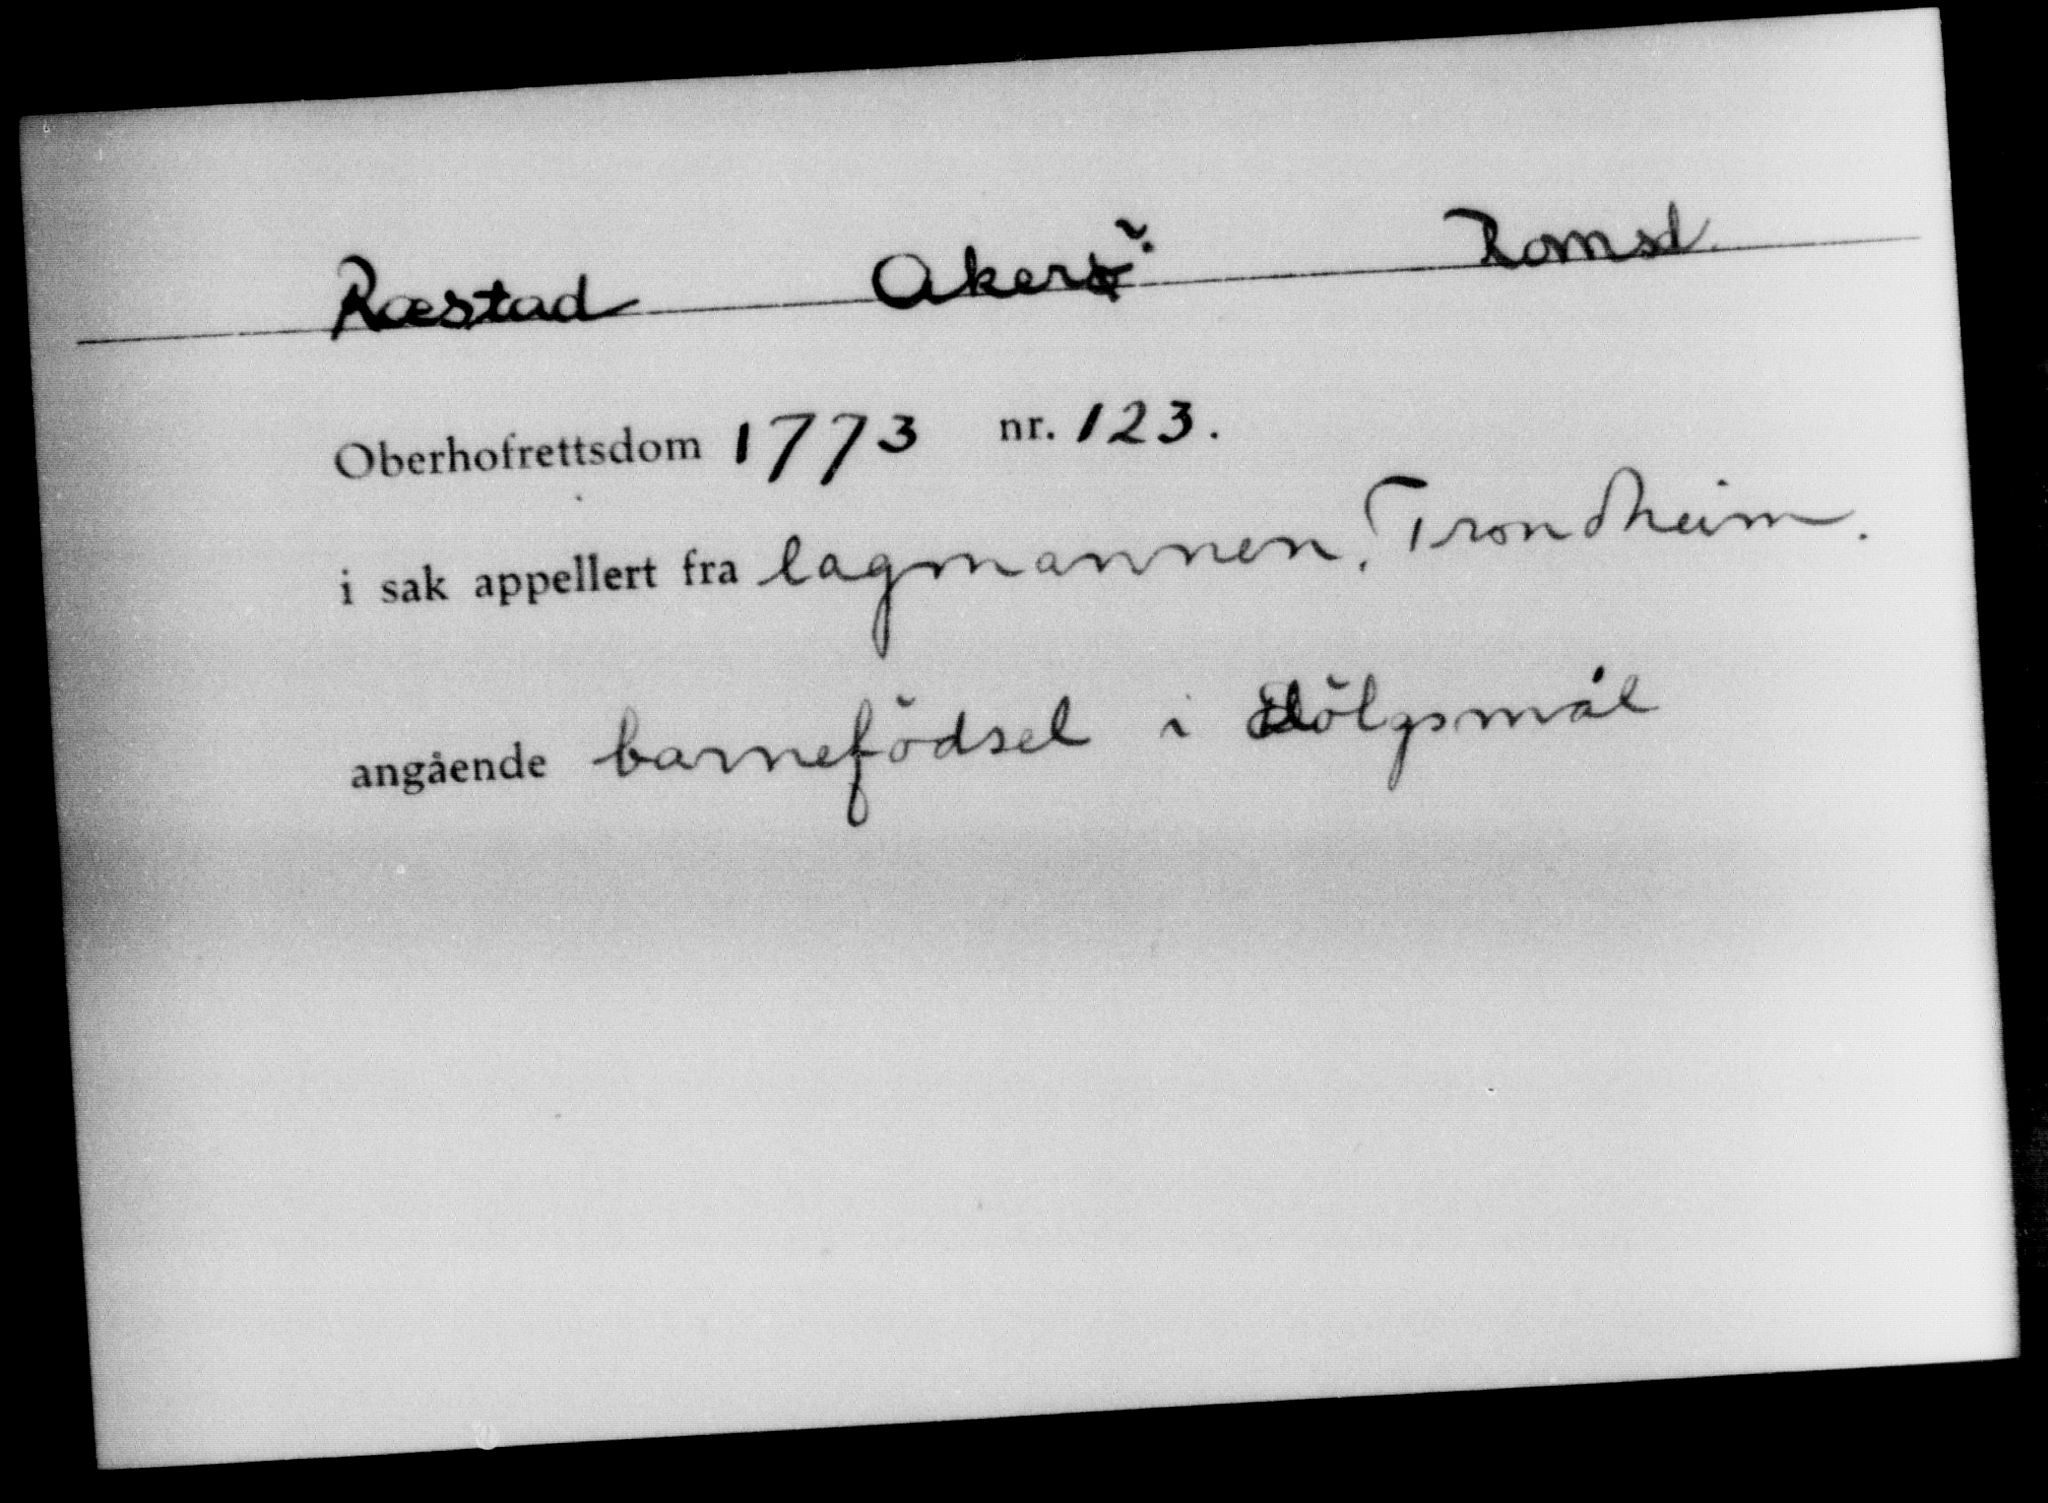 Ræstad Akerö. Romsd.
Oberhofrettsdom 1773 nr. 123.
i sak appellert fra lagmannen, Trondheim.
angående barnefödsel i dölgsmål